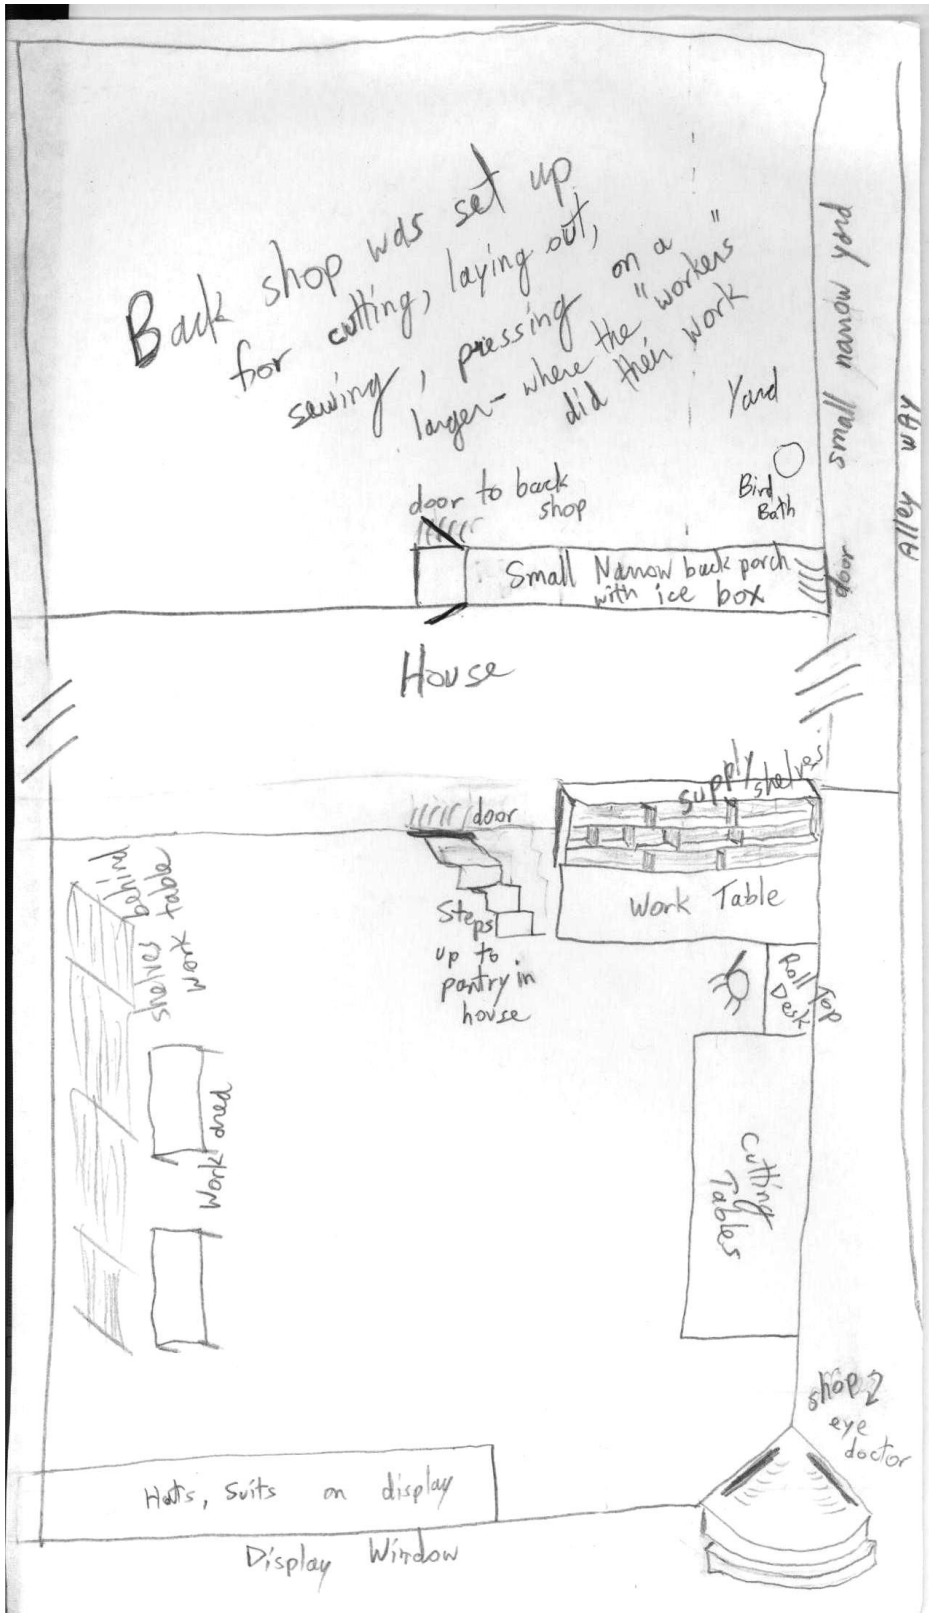 Back shop was set up
for cutting, laying out,
sewing, pressing on a
larger- where the "workers"
did their work
small narrow yard
Alley way
Yard
Bird
Bath
door to back
shop
Small Narrow back porch
with ice box
door
House
supply shelves
door
Work Table
Steps
up to
pantry in
house
Roll Top
Desk
shelves behind
work table
Work area
Cutting
Tables
shop 2
eye
doctor
Hats, Suits on display
Display Window